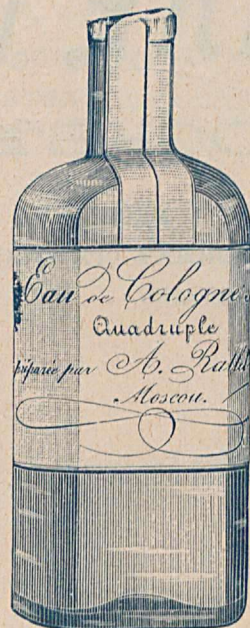 Eau de Cologne
Quadruple
préparée par A. Rallet
Moscou.